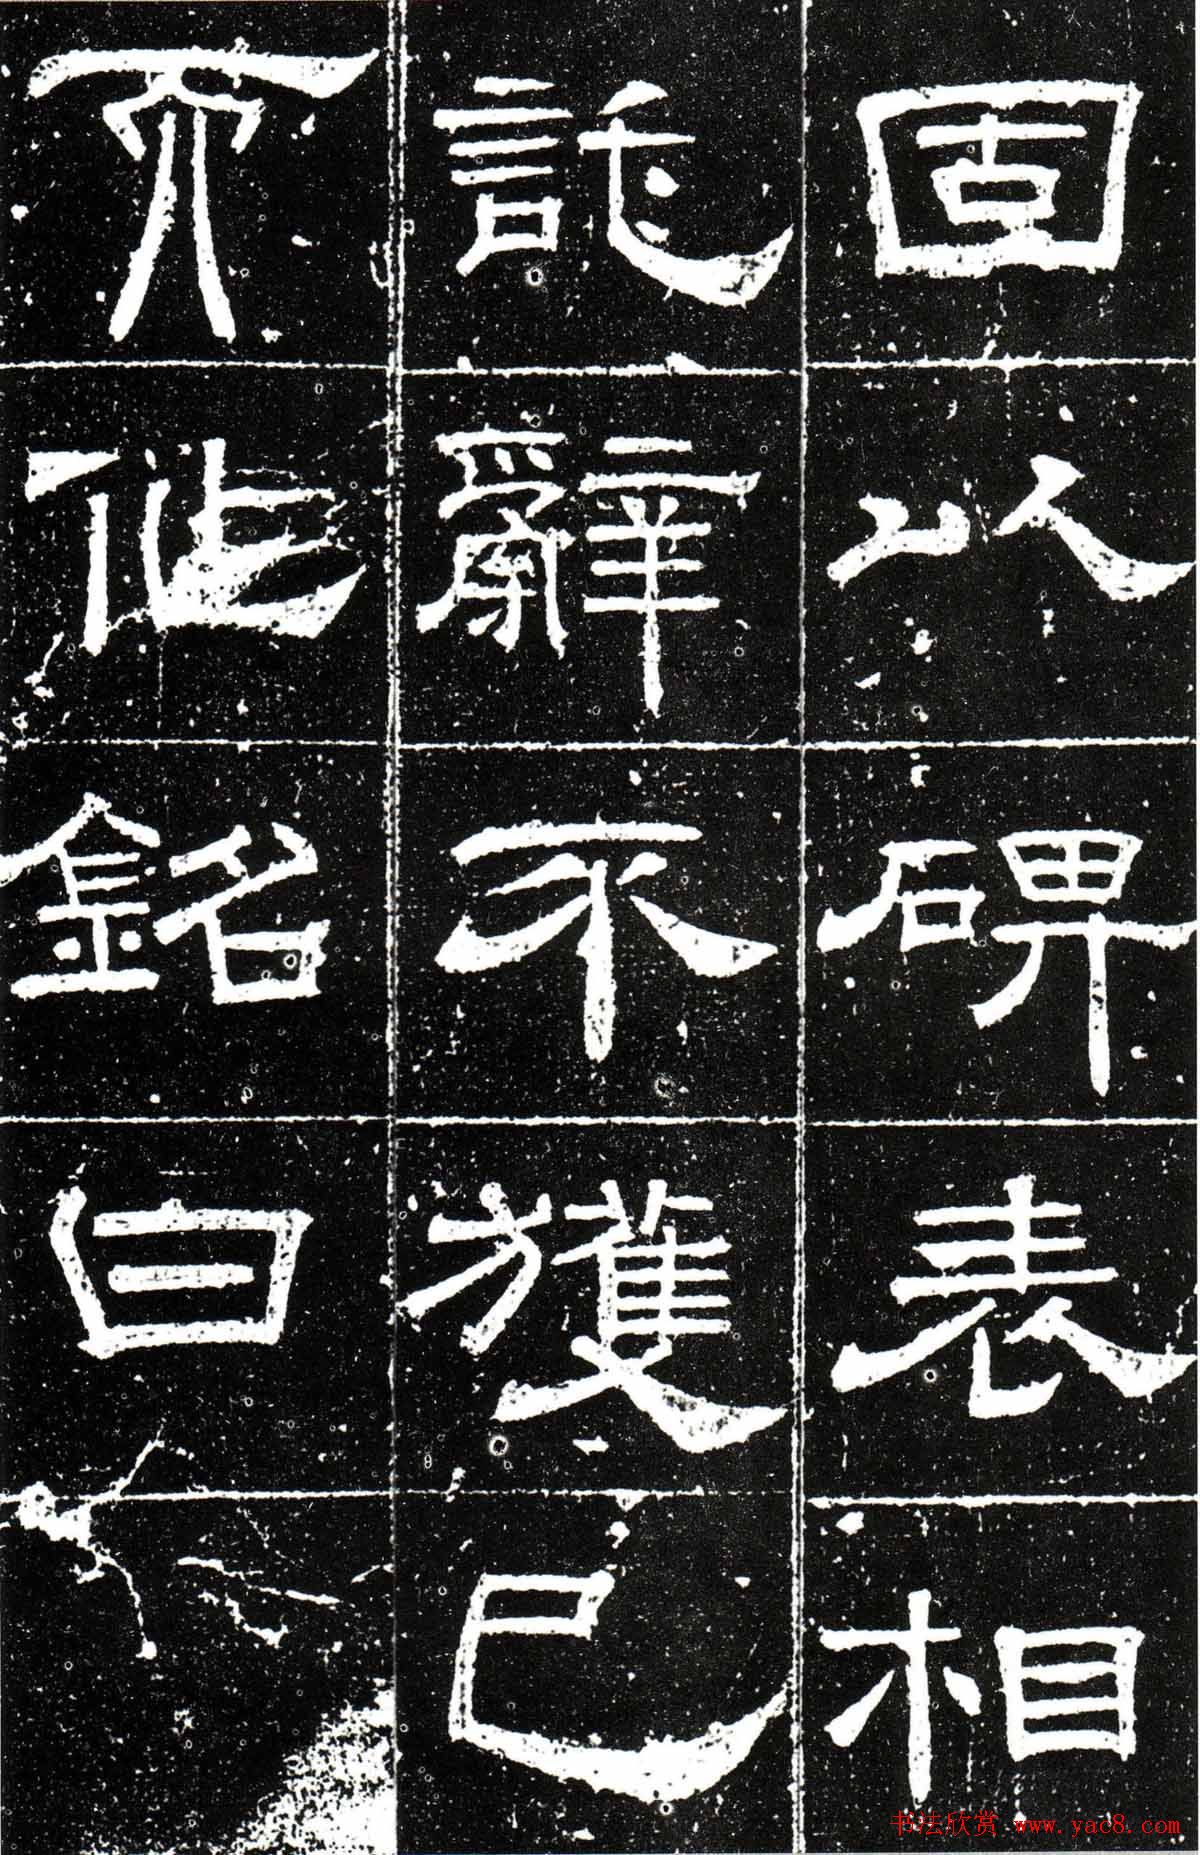 固以碑表相
託辭不獲已
而作銘曰
书法欣赏 www.yac8.com